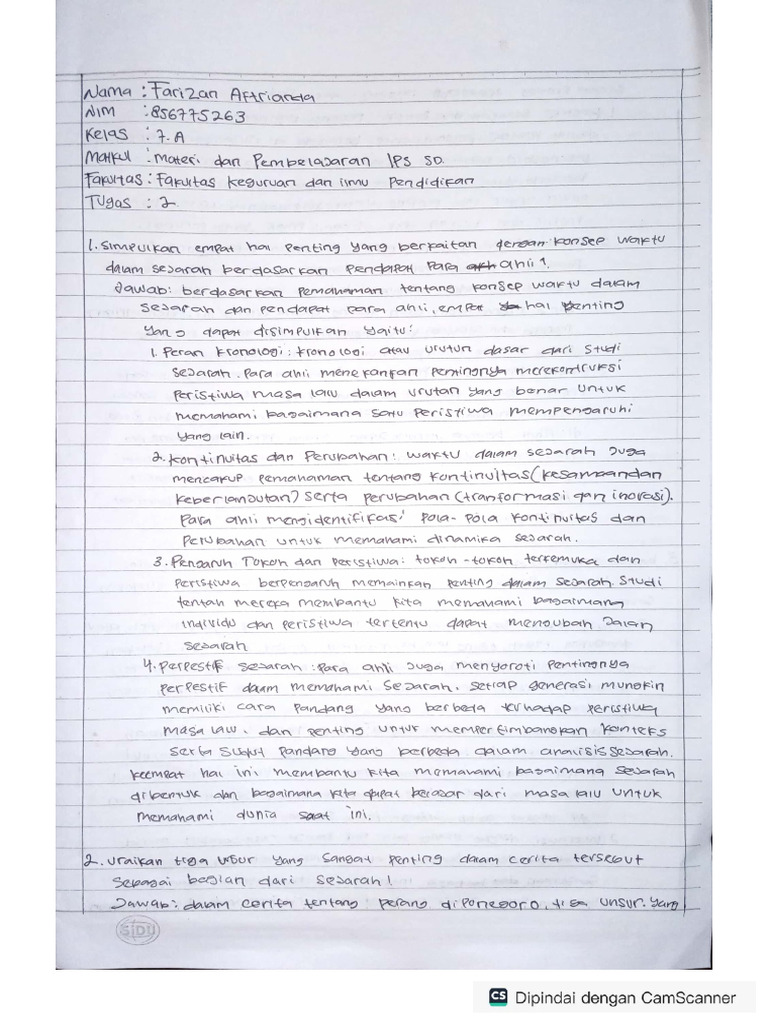 Nama : Farizan Aftrianda
NIM : 856775263
Kelas : 7.A
Matkul : Materi dan Pembelajaran IPS SD.
Fakultas : Fakultas Keguruan dan ilmu Pendidikan
Tugas : 2
1. Simpulkan empat hal penting yang berkaitan dengan konsep waktu
dalam sejarah berdasarkan pendapat para ahli !
Jawab: berdasarkan pemahaman tentang konsep waktu dalam
sejarah dan pendapat para ahli, empat hal penting
yang dapat disimpulkan yaitu:
1. Peran kronologi : kronologi atau urutun dasar dari studi
sejarah. Para ahli menekankan pentingnya merekontruksi
peristiwa masa lalu dalam urutan yang benar untuk
memahami bagaimana satu peristiwa mempengaruhi
yang lain.
2. kontinuitas dan Perubahan : waktu dalam sejarah juga
mencakup pemahaman tentang kontinultas (kesamaan dan
keberlanjutan) serta perubahan (tranformasi dan inovasi).
Para ahli mengidentifikasi pola-pola kontinuitas dan
perubahan untuk memahami dinamika sejarah.
3. Pengaruh Tokoh dan peristiwa : tokoh-tokoh terkemuka dan
peristiwa berpengaruh memainkan penting dalam sejarah. Studi
tentah mereka membantu kita memahami bagaimang
individu dan peristiwa tertentu dapat mengubah jalan
sejarah
4. Perpestif sejarah : Para ahli juga menyoroti pentingnya
perpestif daam memahami sejarah. setiap generasi mungkin
memiliki cara pandang yang berbeda terhadap peristiwa
masa lalu, dan penting untuk mempertimbangkan konteks
serta sudut pandang yang berbeda dalam analisis sejarah.
keempat hal ini membantu kita memahami bagaimana sejarah
dibentuk dan bagaimana kita dapat belajar dari masa lalu untuk
memahami dunia saat ini.
2. Uraikan tiga unsur yang sangat penting dalam cerita tersebut
sebagai bagian dari sejarah !
Jawab : dalam cerita tentang perang diponegoro, tiga unsur yang
SIDU
CS Dipindai dengan CamScanner